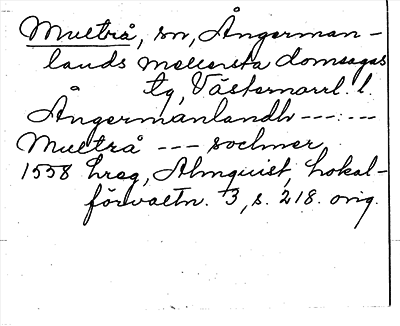 Multrå, sn, Ångerman-
lands mellersta domsagas
tg, Västernorrl. l.
Ångermanlandh ---:---
Multrå --- sochner
1558 hreg, Almquist, Lokal-
förvaltn. 3, s. 218. orig.